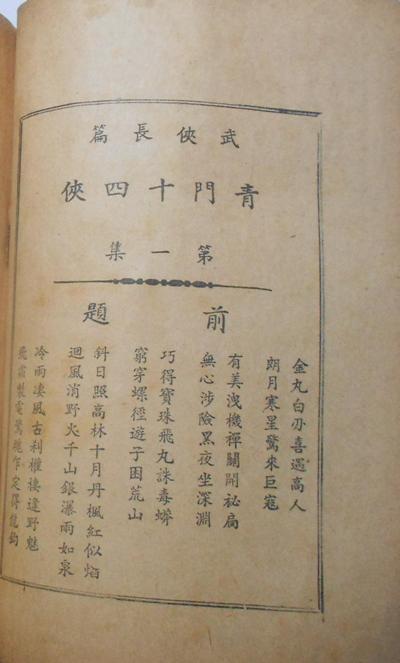 武俠長篇
青門十四俠
第一集
前題
金丸白刃喜遇高人
朗月寒星驚來巨寇
有美洩機禪關開祕扃
無心涉險黑夜坐深淵
巧得寶珠飛丸誅毒蟒
窮穿螺徑遊子困荒山
斜日照高林十月丹楓紅似焰
迴風消野火千山銀瀑雨如泉
冷雨淒風古刹權棲逢野魅
飛霜掣電驚魂乍定得龍鈎